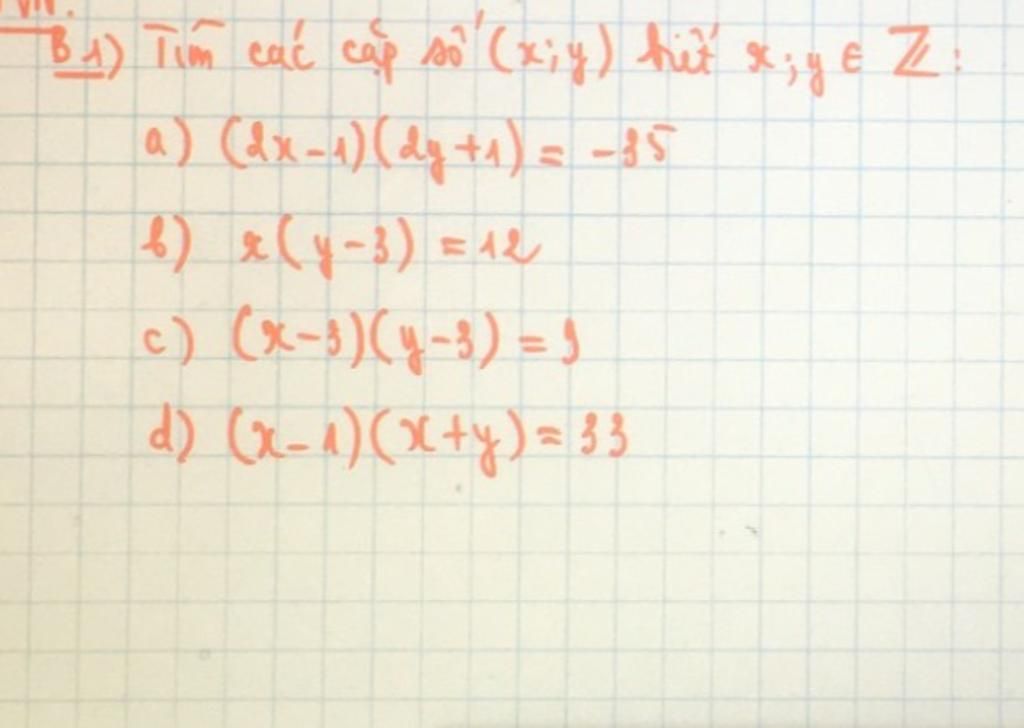 B1) Tìm các cặp số (x;y) biết x;y ∈ ℤ:
a) (2x-1)(2y+1) = -35
b) x(y-3) = 12
c) (x-3)(y-3) = 9
d) (x-1)(x+y) = 33